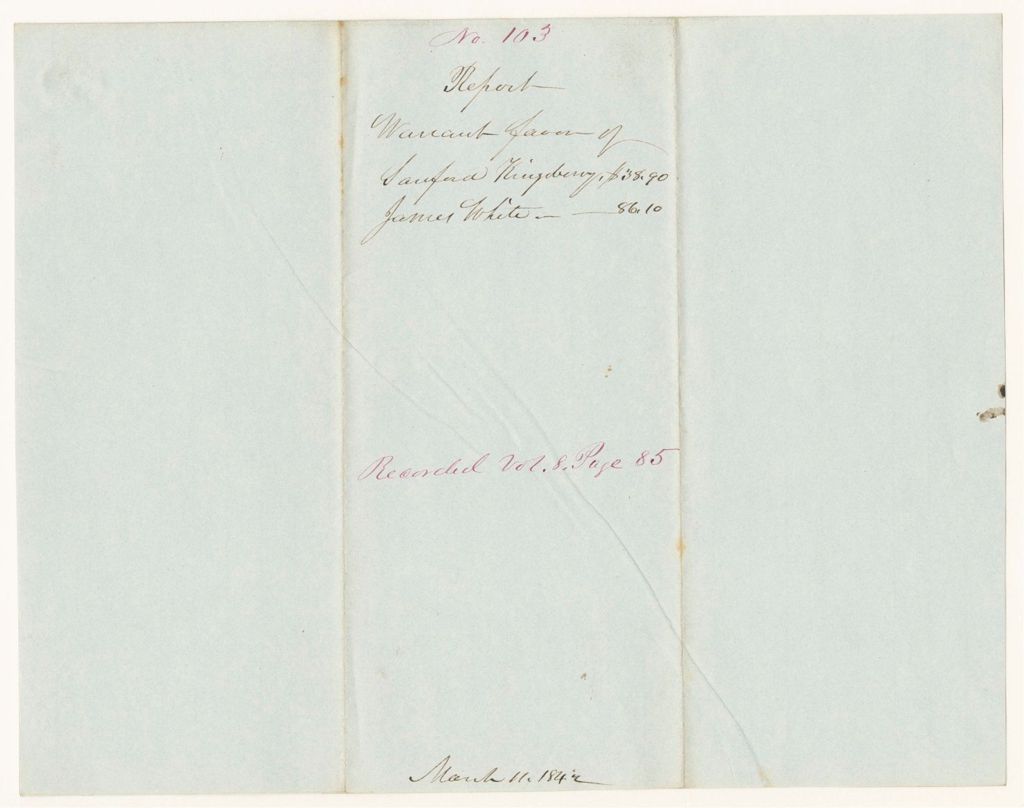 No. 103
Report
Warrant favor of
Sanford Kingsbery, $38.90
James White – — 86.10
Recorded Vol. 8. Page 85
March 11. 1842